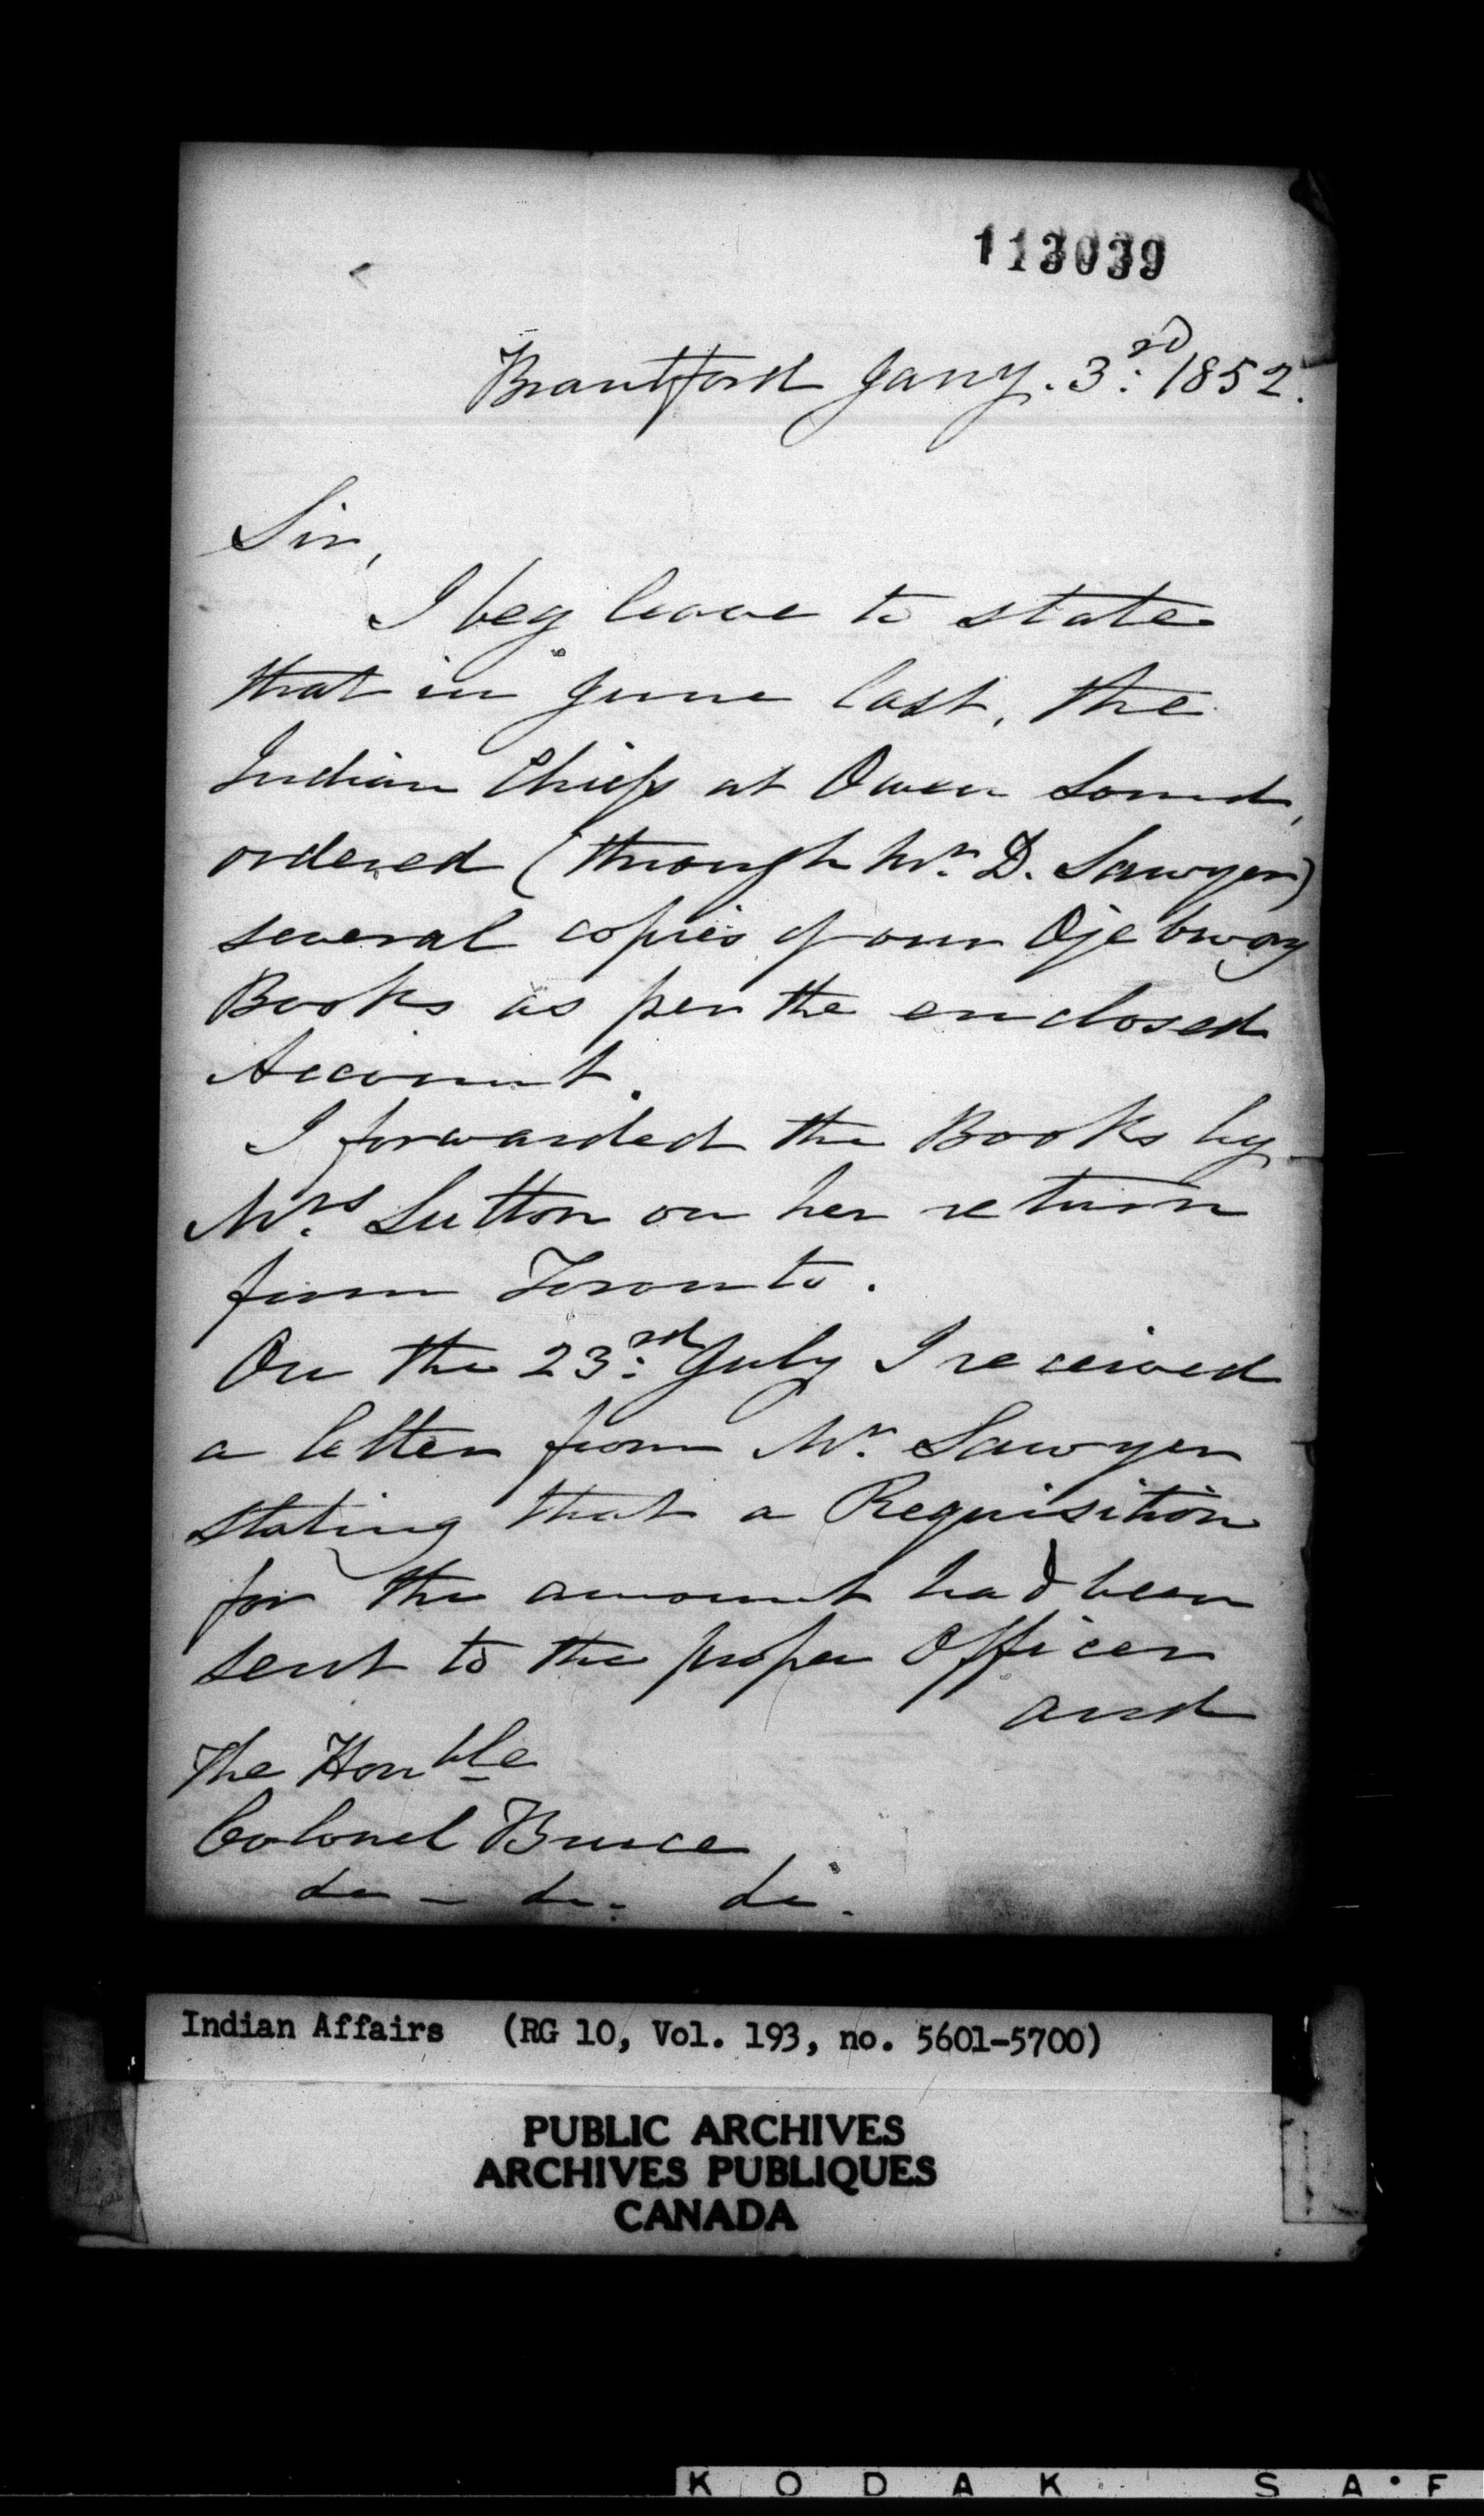 113039
Brantford Jany. 3rd 1852.
Sir,
I beg leave to state
that in June last, the
Indian Chiefs at Owen Sound,
ordered (through Mr. D. Sawyer)
several copies of our Ojebway
Books as per the enclosed
Account.
I forwarded the Books by
Mrs. Sutton on her return
from Toronto.
On the 23rd July I received
a letter from Mr. Sawyer
stating that a Requisition
for the amount had been
sent to the proper Officer
and
The Honble
Colonel Bruce
do - do. do.
Indian Affairs (RG 10, Vol. 193, no. 5601-5700)
PUBLIC ARCHIVES
ARCHIVES PUBLIQUES
CANADA
KODAK SA•F